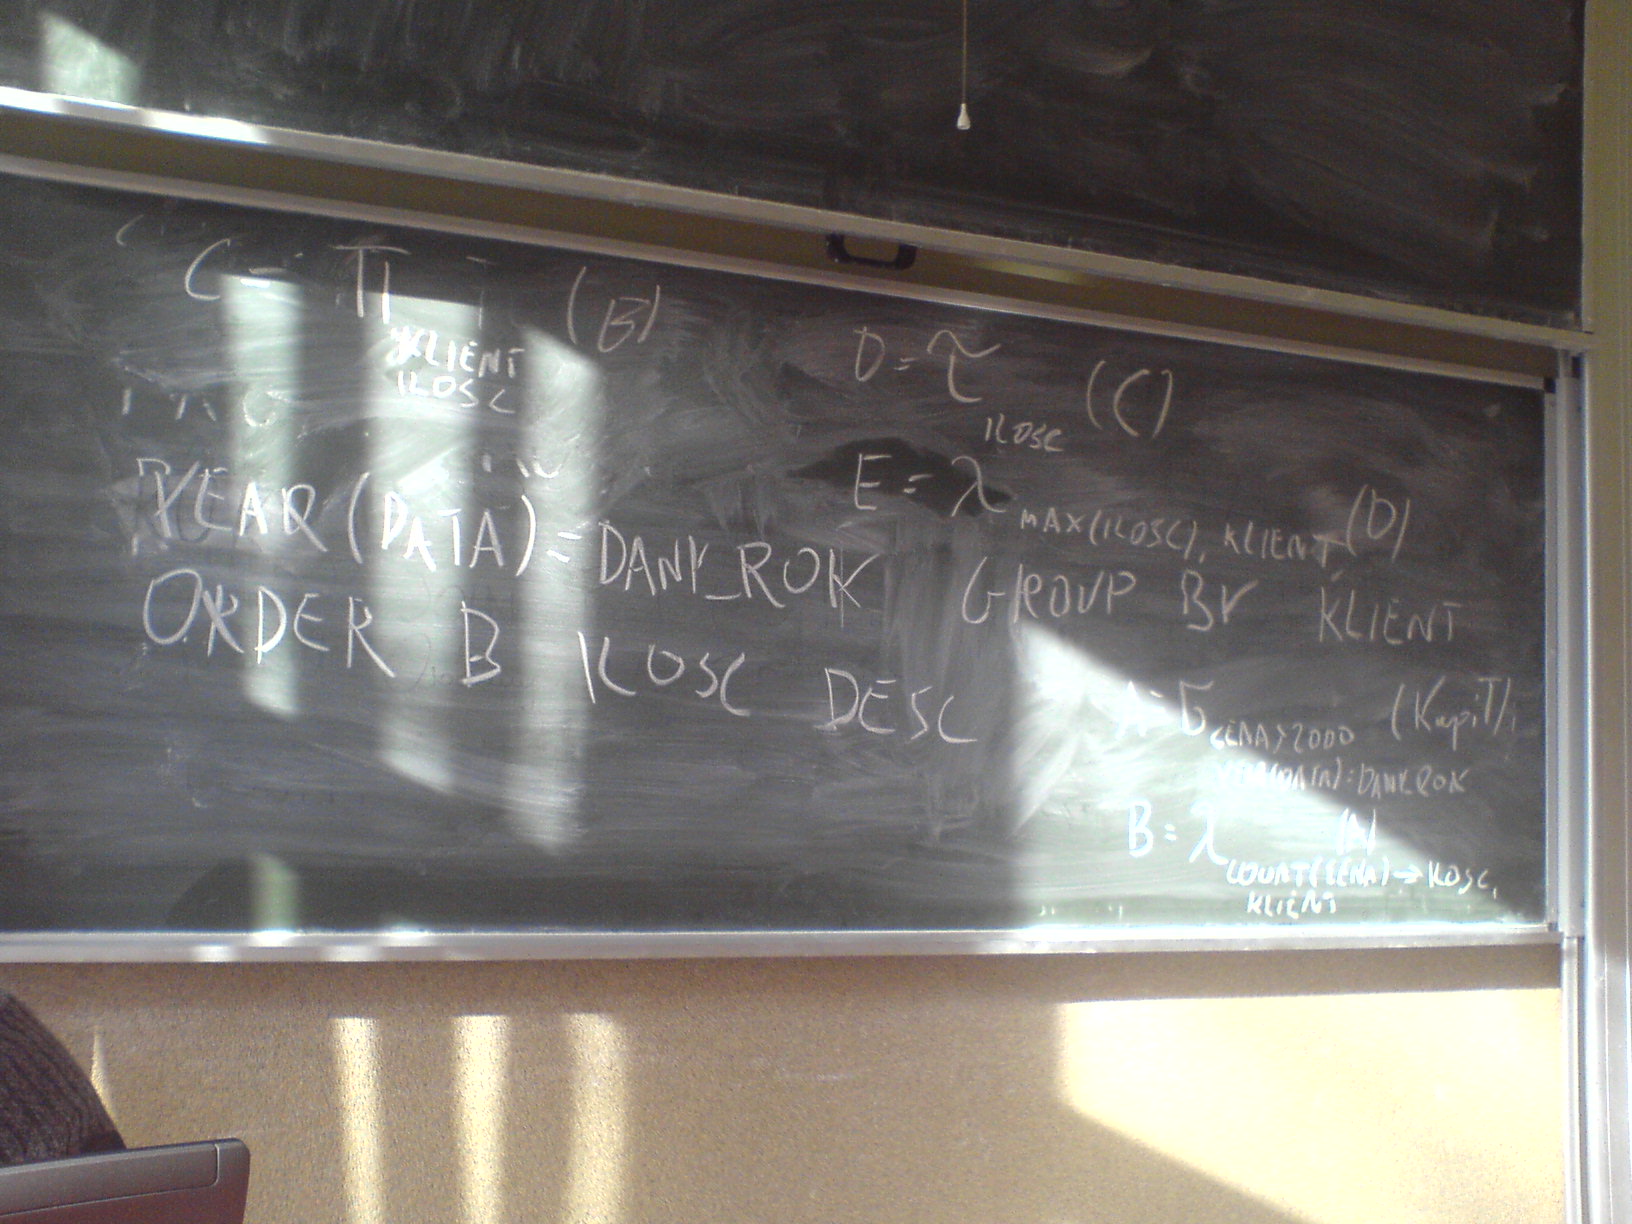 C = π KLIENT (B)
ILOSC
D = τ ILOSC (C)
E = λ MAX(ILOSC), KLIENT (D)
YEAR(DATA) = DANY_ROK GROUP BY KLIENT
ORDER B ILOSC DESC
A = σ CENA>2000 (KupiT)
YEAR(DATA)=DANY_ROK
B = λ
COUNT(CENA) → ILOSC,
KLIENT